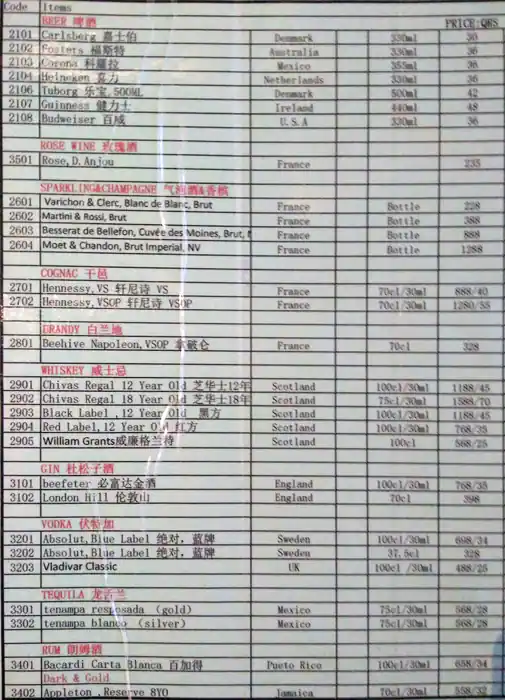 Code Items
BEER 啤酒 PRICE:QHS
2101 Carlsberg 嘉士伯 Denmark 330ml 36
2102 Fosters 福斯特 Australia 330ml 36
2103 Corona 科羅拉 Mexico 355ml 36
2104 Heineken 喜力 Netherlands 330ml 36
2106 Tuborg 乐宝,500ML Denmark 500ml 42
2107 Guinness 健力士 Ireland 440ml 48
2108 Budweiser 百威 U.S.A 330ml 36
ROSE WINE 玫瑰酒
3501 Rose,D.Anjou France 235
SPARKLING&CHAMPAGNE 气泡酒&香槟
2601 Varichon & Clerc, Blanc de Blanc, Brut France Bottle 228
2602 Martini & Rossi, Brut France Bottle 388
2603 Besserat de Bellefon, Cuvée des Moines, Brut, France Bottle 888
2604 Moet & Chandon, Brut Imperial, NV France Bottle 1288
COGNAC 干邑
2701 Hennessy,VS 轩尼诗 VS France 70cl/30ml 888/40
2702 Hennessy,VSOP 轩尼诗 VSOP France 70cl/30ml 1280/55
BRANDY 白兰地
2801 Beehive Napoleon,VSOP 拿破仑 France 70cl 328
WHISKEY 威士忌
2901 Chivas Regal 12 Year Old 芝华士12年 Scotland 100cl/30ml 1188/45
2902 Chivas Regal 18 Year Old 芝华士18年 Scotland 75cl/30ml 1588/70
2903 Black Label ,12 Year Old 黑方 Scotland 100cl/30ml 1188/45
2904 Red Label,12 Year Old 红方 Scotland 100cl/30ml 768/35
2905 William Grants威廉格兰特 Scotland 100cl 568/25
GIN 杜松子酒
3101 beefeter 必富达金酒 England 100cl/30ml 768/35
3102 London Hill 伦敦山 England 70cl 398
VODKA 伏特加
3201 Absolut,Blue Label 绝对，蓝牌 Sweden 100cl/30ml 698/34
3202 Absolut,Blue Label 绝对，蓝牌 Sweden 37.5cl 328
3203 Vladivar Classic UK 100cl /30ml 488/25
TEQUILA 龙舌兰
3301 tenampa resposada （gold） Mexico 75cl/30ml 568/28
3302 tenampa blanco （silver） Mexico 75cl/30ml 568/28
RUM 朗姆酒
3401 Bacardi Carta Blanca 百加得 Pueto Rico 100cl/30ml 658/34
Dark & Gold
3402 Appleton ,Reserve 8YO Jamaica 70cl/30ml 558/32